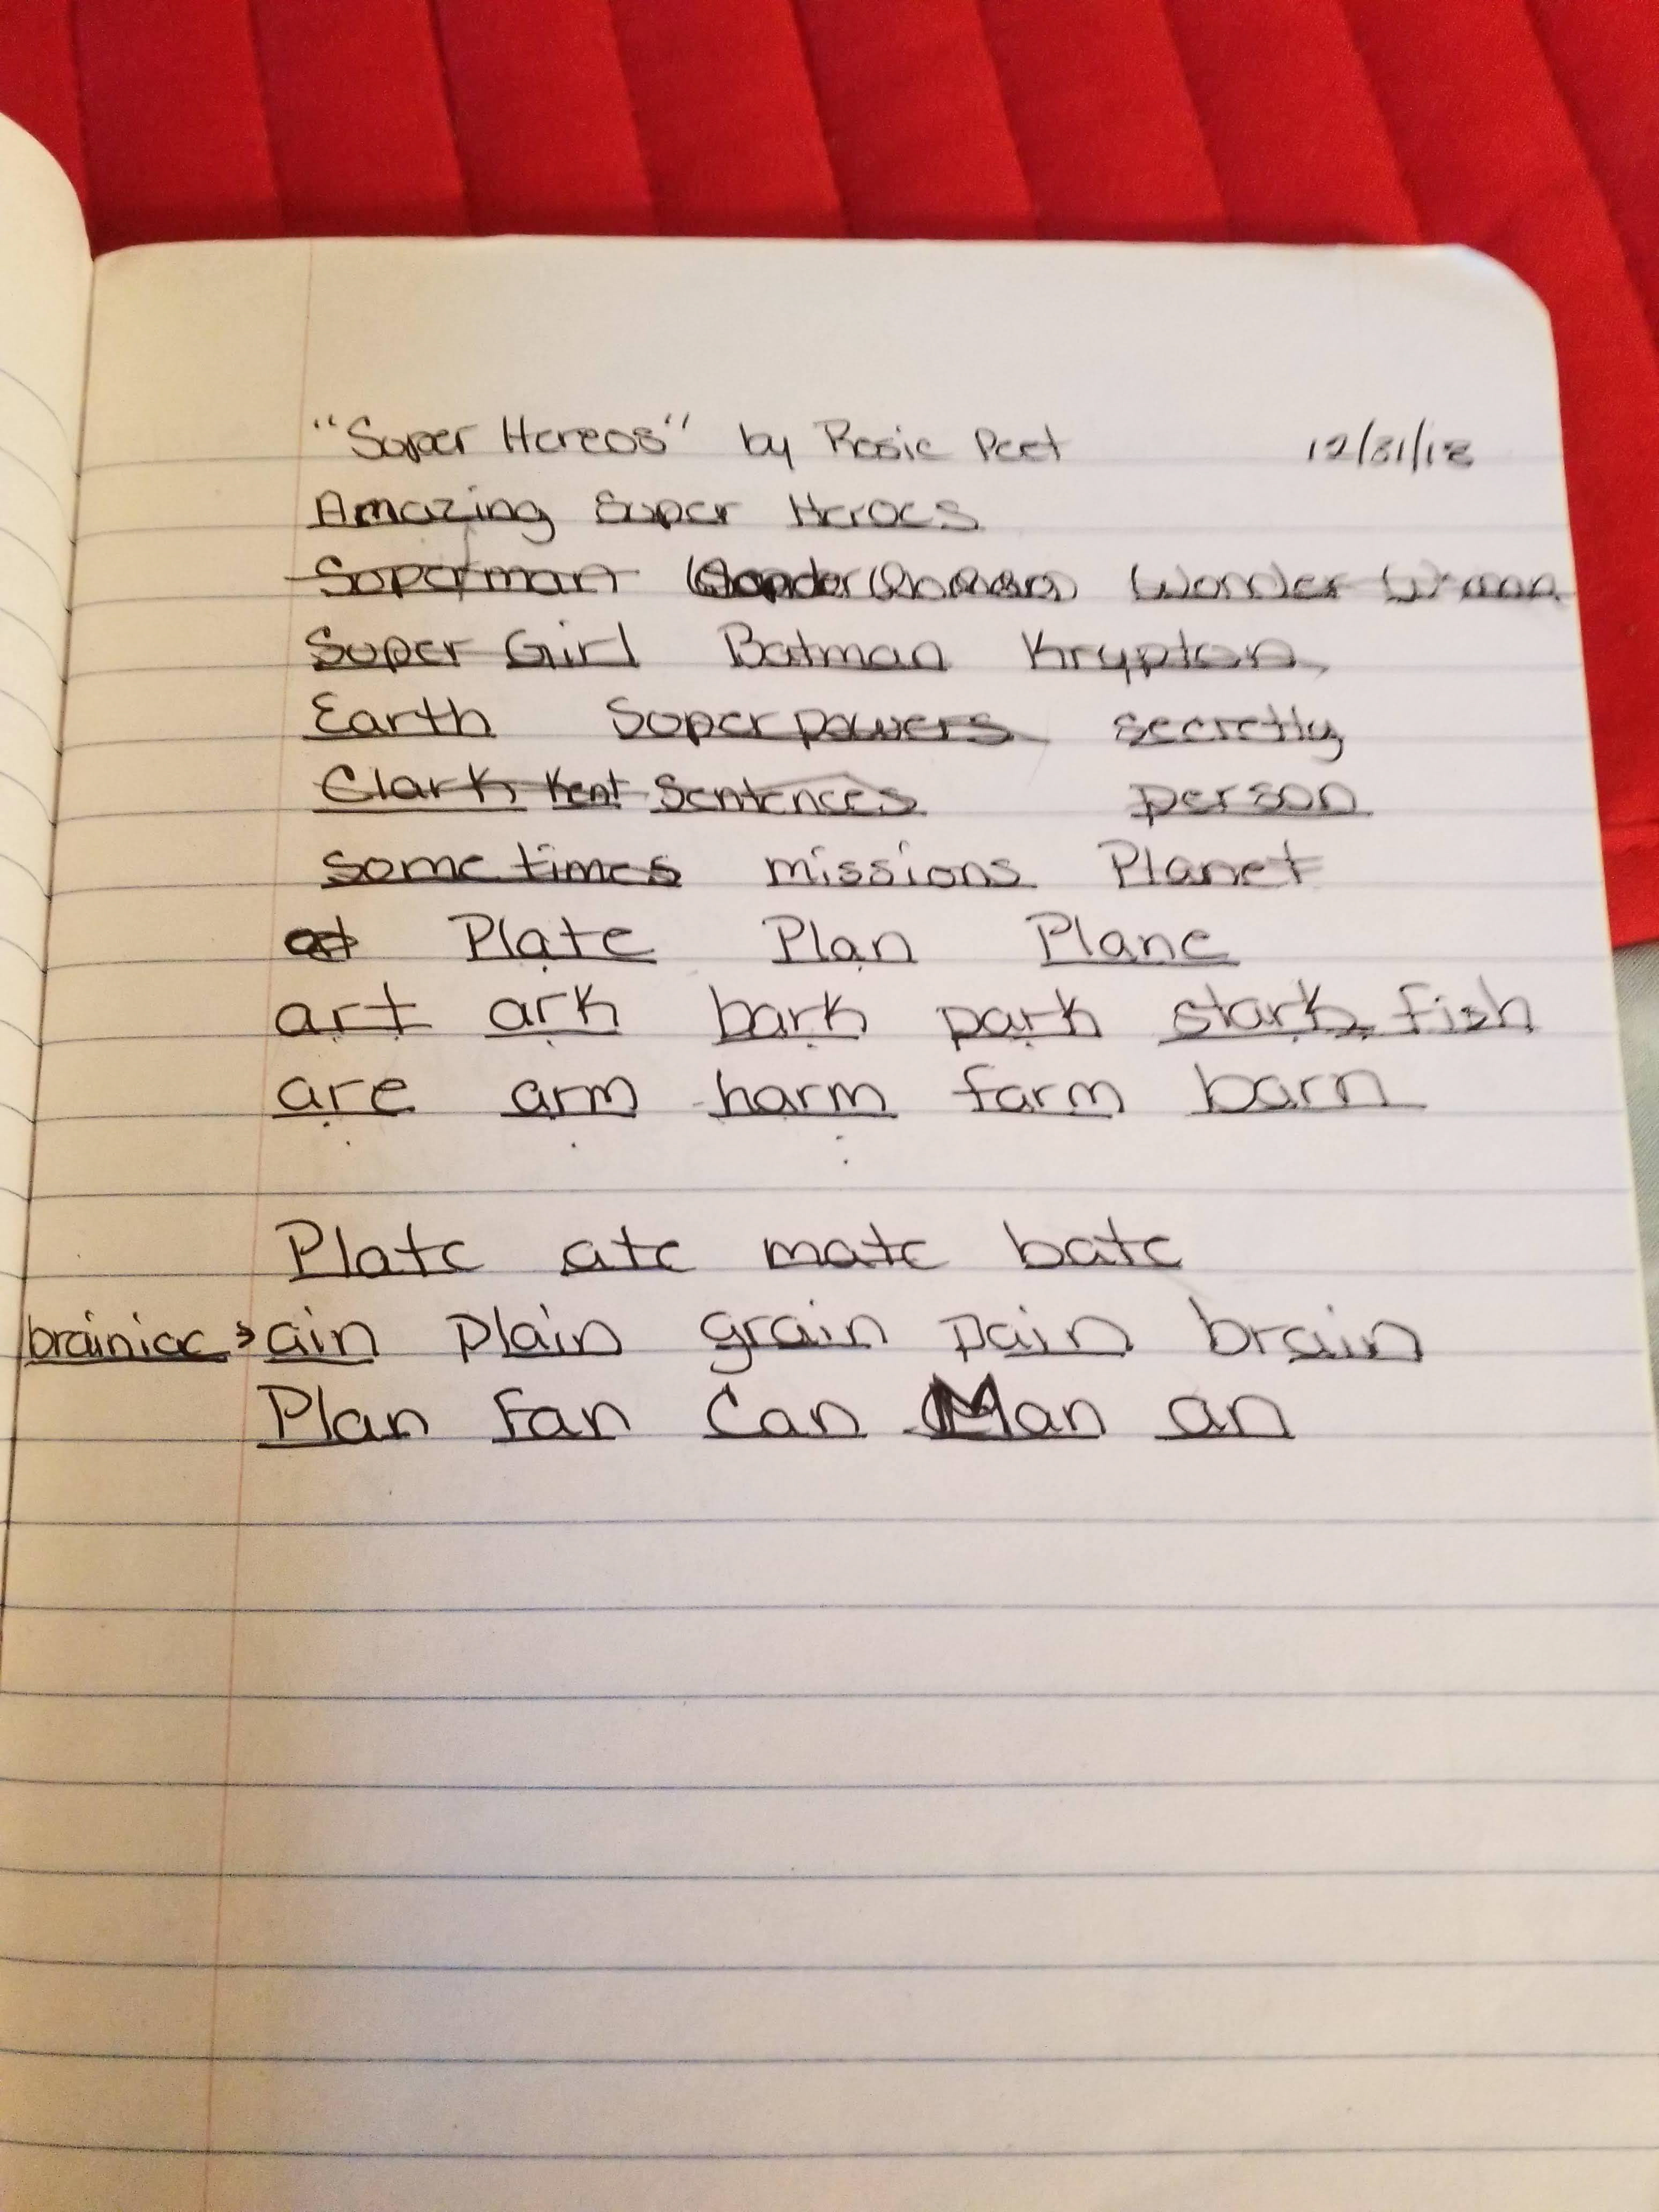 "Super Hereos" by Rosie Peet 12/31/18
Amazing Super Heroes
Superman Wonder Woman Wonder Woman
Super Girl Batman Krypton
Earth Superpowers secretly
Clark Kent Sentences person
some times missions Planet
Plate Plan Plane
art ark bark park stark fish
are arm harm farm barn
Plate ate mate bate
brainiac > ain plain grain pain brain
Plan Fan Can Man an